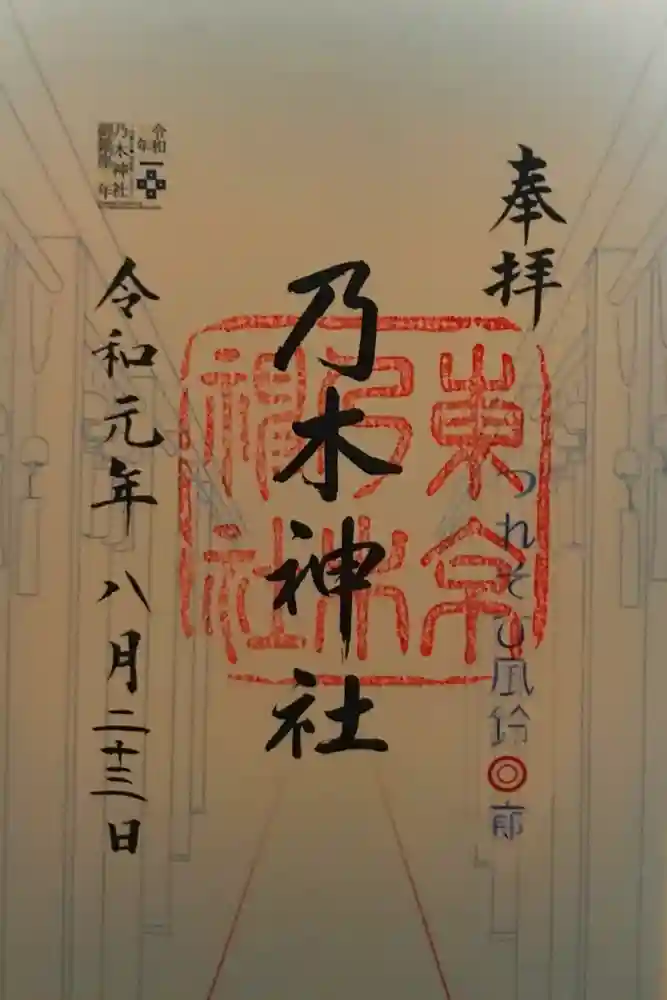 奉拝
つれそひ風鈴◎廊
東京
乃木
神社
乃木神社
令和元年八月二十三日
令和
乃木神社